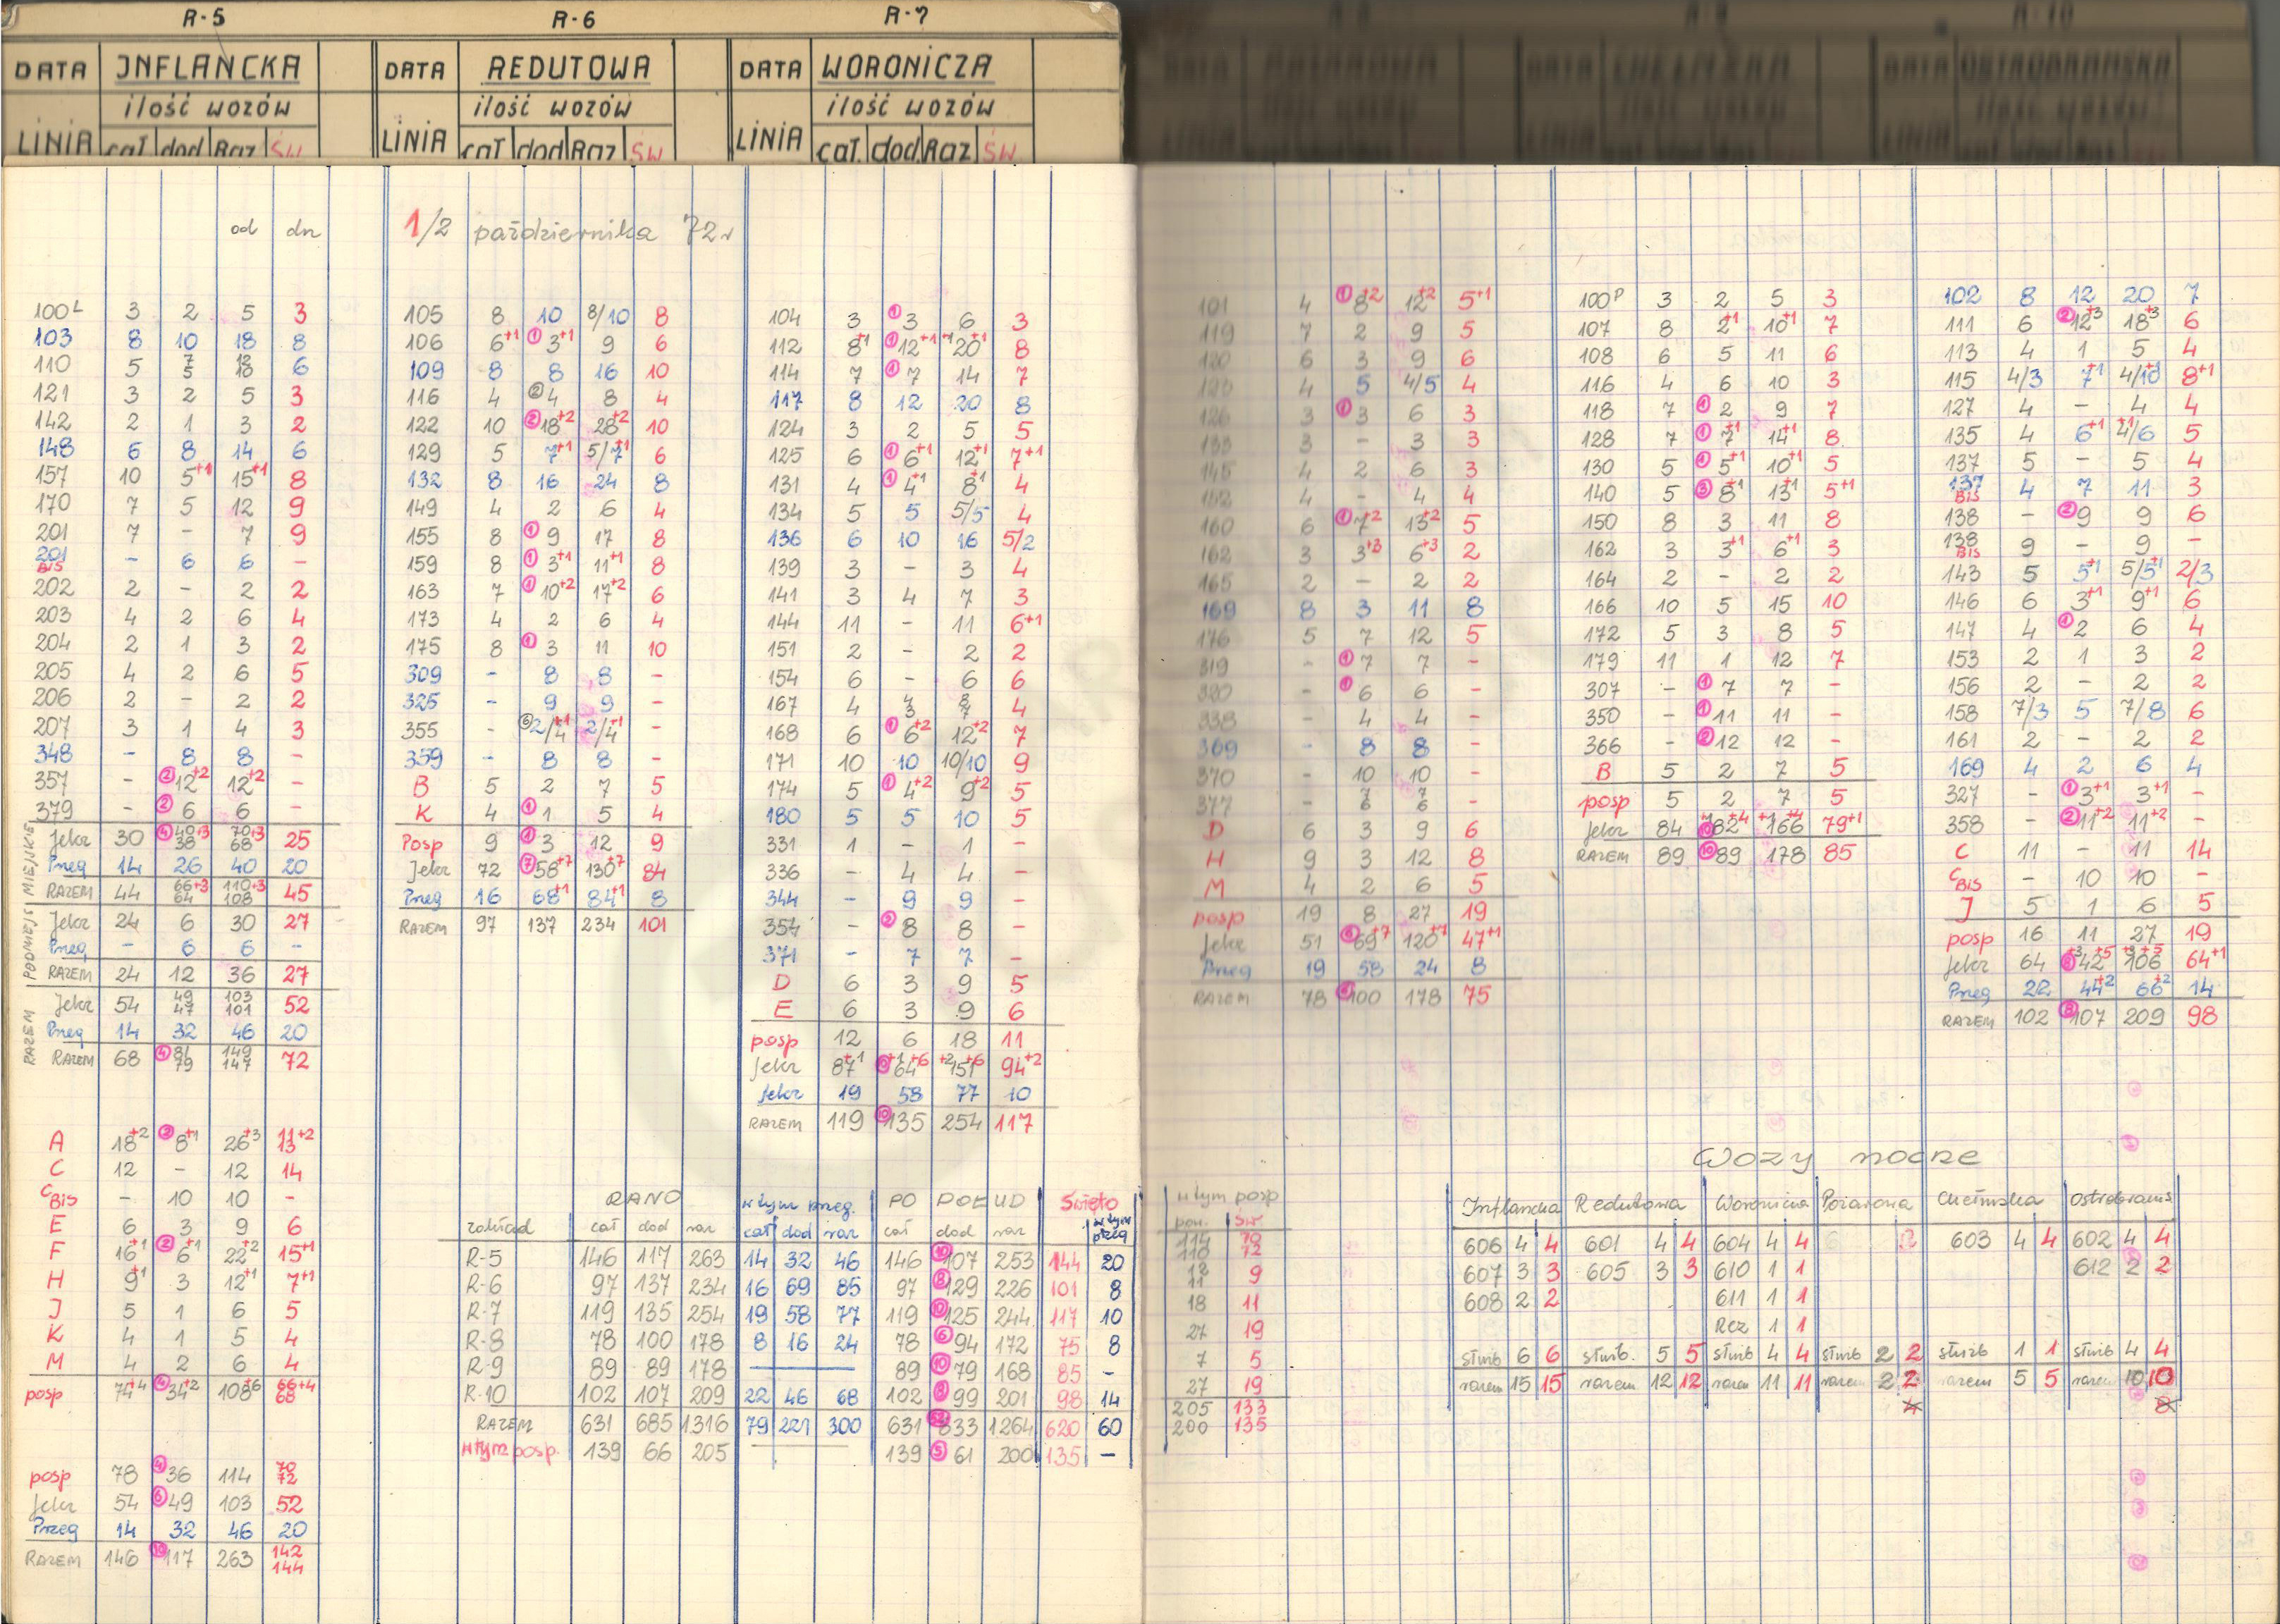 R-5
DATA INFLANCKA
ilość wozów
LINIA cał dod Raz ŚW
od dn
100L 3 2 5 3
103 8 10 18 8
110 5 7 5 12 10 6
121 3 2 5 3
142 2 1 3 2
148 6 8 14 6
157 10 5+1 15+1 8
170 7 5 12 9
201 7 - 7 9
201 BIS - 6 6 -
202 2 - 2 2
203 4 2 6 4
204 2 1 3 2
205 4 2 6 5
206 2 - 2 2
207 3 1 4 3
348 - 8 8 -
357 - ② 12+2 12+2 -
379 - ② 6 6 -
MIEJSKIE
Jelcz 30 ④ 40+3 38 70+3 68 25
Przeg 14 26 40 20
RAZEM 44 66+3 64 110+3 108 45
PODMIEJS
Jelcz 24 6 30 27
Przeg - 6 6 -
RAZEM 24 12 36 27
RAZEM
Jelcz 54 49 47 103 101 52
Przeg 14 32 46 20
RAZEM 68 ④ 81 79 149 147 72
A 18+2 ② 8+1 26+3 11+2 13
C 12 - 12 14
C BIS - 10 10 -
E 6 3 9 6
F 16+1 ② 6+1 22+2 15+1
H 9+1 3 12+1 7+1
J 5 1 6 5
K 4 1 5 4
M 4 2 6 4
posp 74+4 ④ 34+2 108+6 66+4 68
posp 78 ④ 36 114 70 72
Jelcz 54 ⑥ 49 103 52
Przeg 14 32 46 20
RAZEM 146 ⑩ 117 263 142 144
R-6
DATA REDUTOWA
ilość wozów
LINIA cał dod Raz ŚW
1/2 października 72r
105 8 10 8/10 8
106 6+1 ① 3+1 9 6
109 8 8 16 10
116 4 ② 4 8 4
122 10 ② 18+2 28+2 10
129 5 7+1 5/7+1 6
132 8 16 24 8
149 4 2 6 4
155 8 ① 9 17 8
159 8 ① 3+1 11+1 8
163 7 ① 10+2 17+2 6
173 4 2 6 4
175 8 ① 3 11 10
309 - 8 8 -
325 - 9 9 -
355 - ⑥ 2/4+1 2/4+1 -
359 - 8 8 -
B 5 2 7 5
K 4 ① 1 5 4
Posp 9 ① 3 12 9
Jelcz 72 ⑦ 58+7 130+7 84
Przeg 16 68+1 84+1 8
RAZEM 97 137 234 101
R-7
DATA WORONICZA
ilość wozów
LINIA cał. dod Raz ŚW
104 3 ① 3 6 3
112 8+1 ① 12+1 +1 20+1 8
114 7 ① 7 14 7
117 8 12 20 8
124 3 2 5 5
125 6 ① 6+1 12+1 7+1
131 4 ① 4+1 8+1 4
134 5 5 5/5 4
136 6 10 16 5/2
139 3 - 3 4
141 3 4 7 3
144 11 - 11 6+1
151 2 - 2 2
154 6 - 6 6
167 4 4 3 8 7 4
168 6 ① 6+2 12+2 7
171 10 10 10/10 9
174 5 ① 4+2 9+2 5
180 5 5 10 5
331 1 - 1 -
336 - 4 4 -
344 - 9 9 -
354 - ② 8 8 -
371 - 7 7 -
D 6 3 9 5
E 6 3 9 6
posp 12 6 18 11
Jelcz 87+1 +1 64+6 +2 151+6 94+2
Jelcz 19 58 77 10
RAZEM 119 ⑩ 135 254 117
RANO w tym przeg. PO POŁUD Święto
zakład cał dod raz cał dod raz cał dod raz w tym przeg
R-5 146 117 263 14 32 46 146 ⑩ 107 253 144 20
R-6 97 137 234 16 69 85 97 ⑧ 129 226 101 8
R-7 119 135 254 19 58 77 119 ⑩ 125 244 117 10
R-8 78 100 178 8 16 24 78 ⑥ 94 172 75 8
R-9 89 89 178 — 89 ⑩ 79 168 85 -
R-10 102 107 209 22 46 68 102 ⑧ 99 201 98 14
RAZEM 631 685 1316 79 221 300 631 633 1264 620 60
w tym posp. 139 66 205 — 139 ⑤ 61 200 135 -
w tym posp
pow. św
114 110 70 72
12 11 9
18 11
27 19
7 5
27 19
205 133
200 135
101 4 ① 8+2 12+2 5+1
119 7 2 9 5
120 6 3 9 6
123 4 5 4/5 4
126 3 ① 3 6 3
133 3 - 3 3
145 4 2 6 3
152 4 - 4 4
160 6 ① 7+2 13+2 5
162 3 3+3 6+3 2
165 2 - 2 2
169 8 3 11 8
176 5 7 12 5
319 - ① 7 7 -
320 - ① 6 6 -
338 - 4 4 -
369 - 8 8 -
370 - 10 10 -
377 - 7 6 7 6 -
D 6 3 9 6
H 9 3 12 8
M 4 2 6 5
posp 19 8 27 19
Jelcz 51 ⑥ 69+7 120+7 47+1
Przeg 19 58 24 8
RAZEM 78 ⑥ 100 178 75
100P 3 2 5 3
107 8 2+1 10+1 7
108 6 5 11 6
116 4 6 10 3
118 7 ① 2 9 7
128 7 ① 7+1 14+1 8
130 5 ① 5+1 10+1 5
140 5 ③ 8+1 13+1 5+1
150 8 3 11 8
162 3 3+1 6+1 3
164 2 - 2 2
166 10 5 15 10
172 5 3 8 5
179 11 1 12 7
307 - ① 7 7 -
350 - ① 11 11 -
366 - ② 12 12 -
B 5 2 7 5
posp 5 2 7 5
Jelcz 84 ⑩ +1 82+4 +1 166+4 79+1
RAZEM 89 ⑩ 89 178 85
R-10
DATA OSTROBRAMSKA
102 8 12 20 7
111 6 ② 12+3 18+3 6
113 4 1 5 4
115 4/3 7+1 4/10+1 8+1
127 4 - 4 4
135 4 6+1 4/6+1 5
137 5 - 5 4
137 BIS 4 7 11 3
138 - ② 9 9 6
138 BIS 9 - 9 -
143 5 5+1 5/5+1 2/3
146 6 3+1 9+1 6
147 4 ① 2 6 4
153 2 1 3 2
156 2 - 2 2
158 7/3 5 7/8 6
161 2 - 2 2
169 4 2 6 4
327 - ① 3+1 3+1 -
358 - ② 11+2 11+2 -
C 11 - 11 14
C BIS - 10 10 -
J 5 1 6 5
posp 16 11 27 19
Jelcz 64 ⑧ +3 42+5 +3 106+5 64+1
Przeg 22 44+2 66+2 14
RAZEM 102 ⑧ 107 209 98
Wozy nocne
Inflancka Redutowa Woronicza Pożarowa Chełmska Ostrobrams
606 4 4 601 4 4 604 4 4 603 4 4 602 4 4
607 3 3 605 3 3 610 1 1 612 2 2
608 2 2 611 1 1
Rez 1 1
służb 6 6 służb. 5 5 służb 4 4 służb 2 2 służb 1 1 służb 4 4
razem 15 15 razem 12 12 razem 11 11 razem 2 2 razem 5 5 razem 10 10
4 8